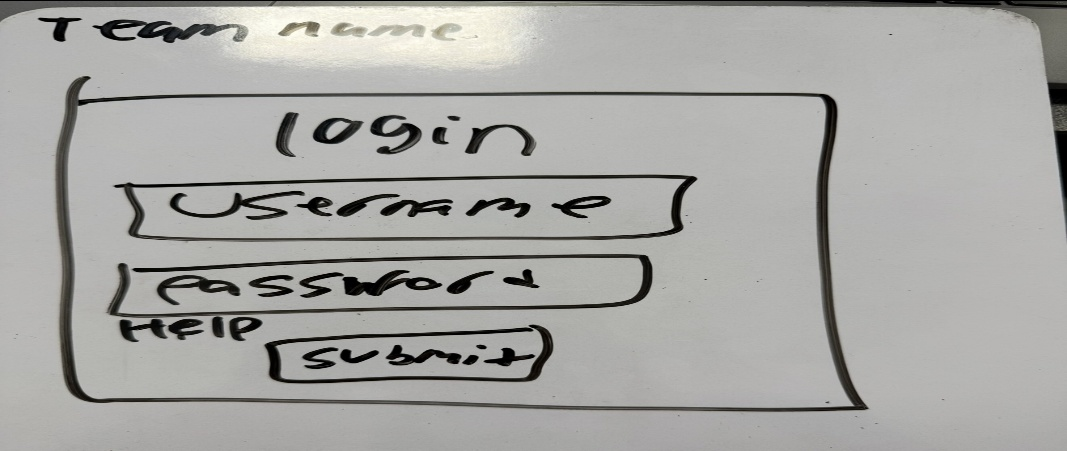 Team name
login
Username
Password
HElP
submit